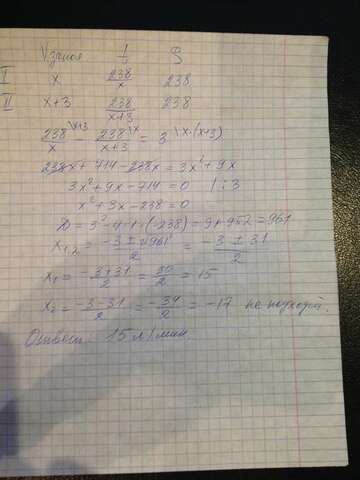 t S
I x 238/x 238
II x+3 238/(x+3) 238
238/x \x+3 - 238/(x+3) \x = 3 \x·(x+3)
238x + 714 - 238x = 3x² + 9x
3x² + 9x - 714 = 0 | : 3
x² + 3x - 238 = 0
D = 3² - 4·1·(-238) = 9 + 952 = 961
x₁,₂ = (-3 ± √961)/2 = (-3 ± 31)/2
x₁ = (-3+31)/2 = 30/2 = 15
x₂ = (-3-31)/2 = -34/2 = -17 не подходит.
Ответ: 15 л/мин.